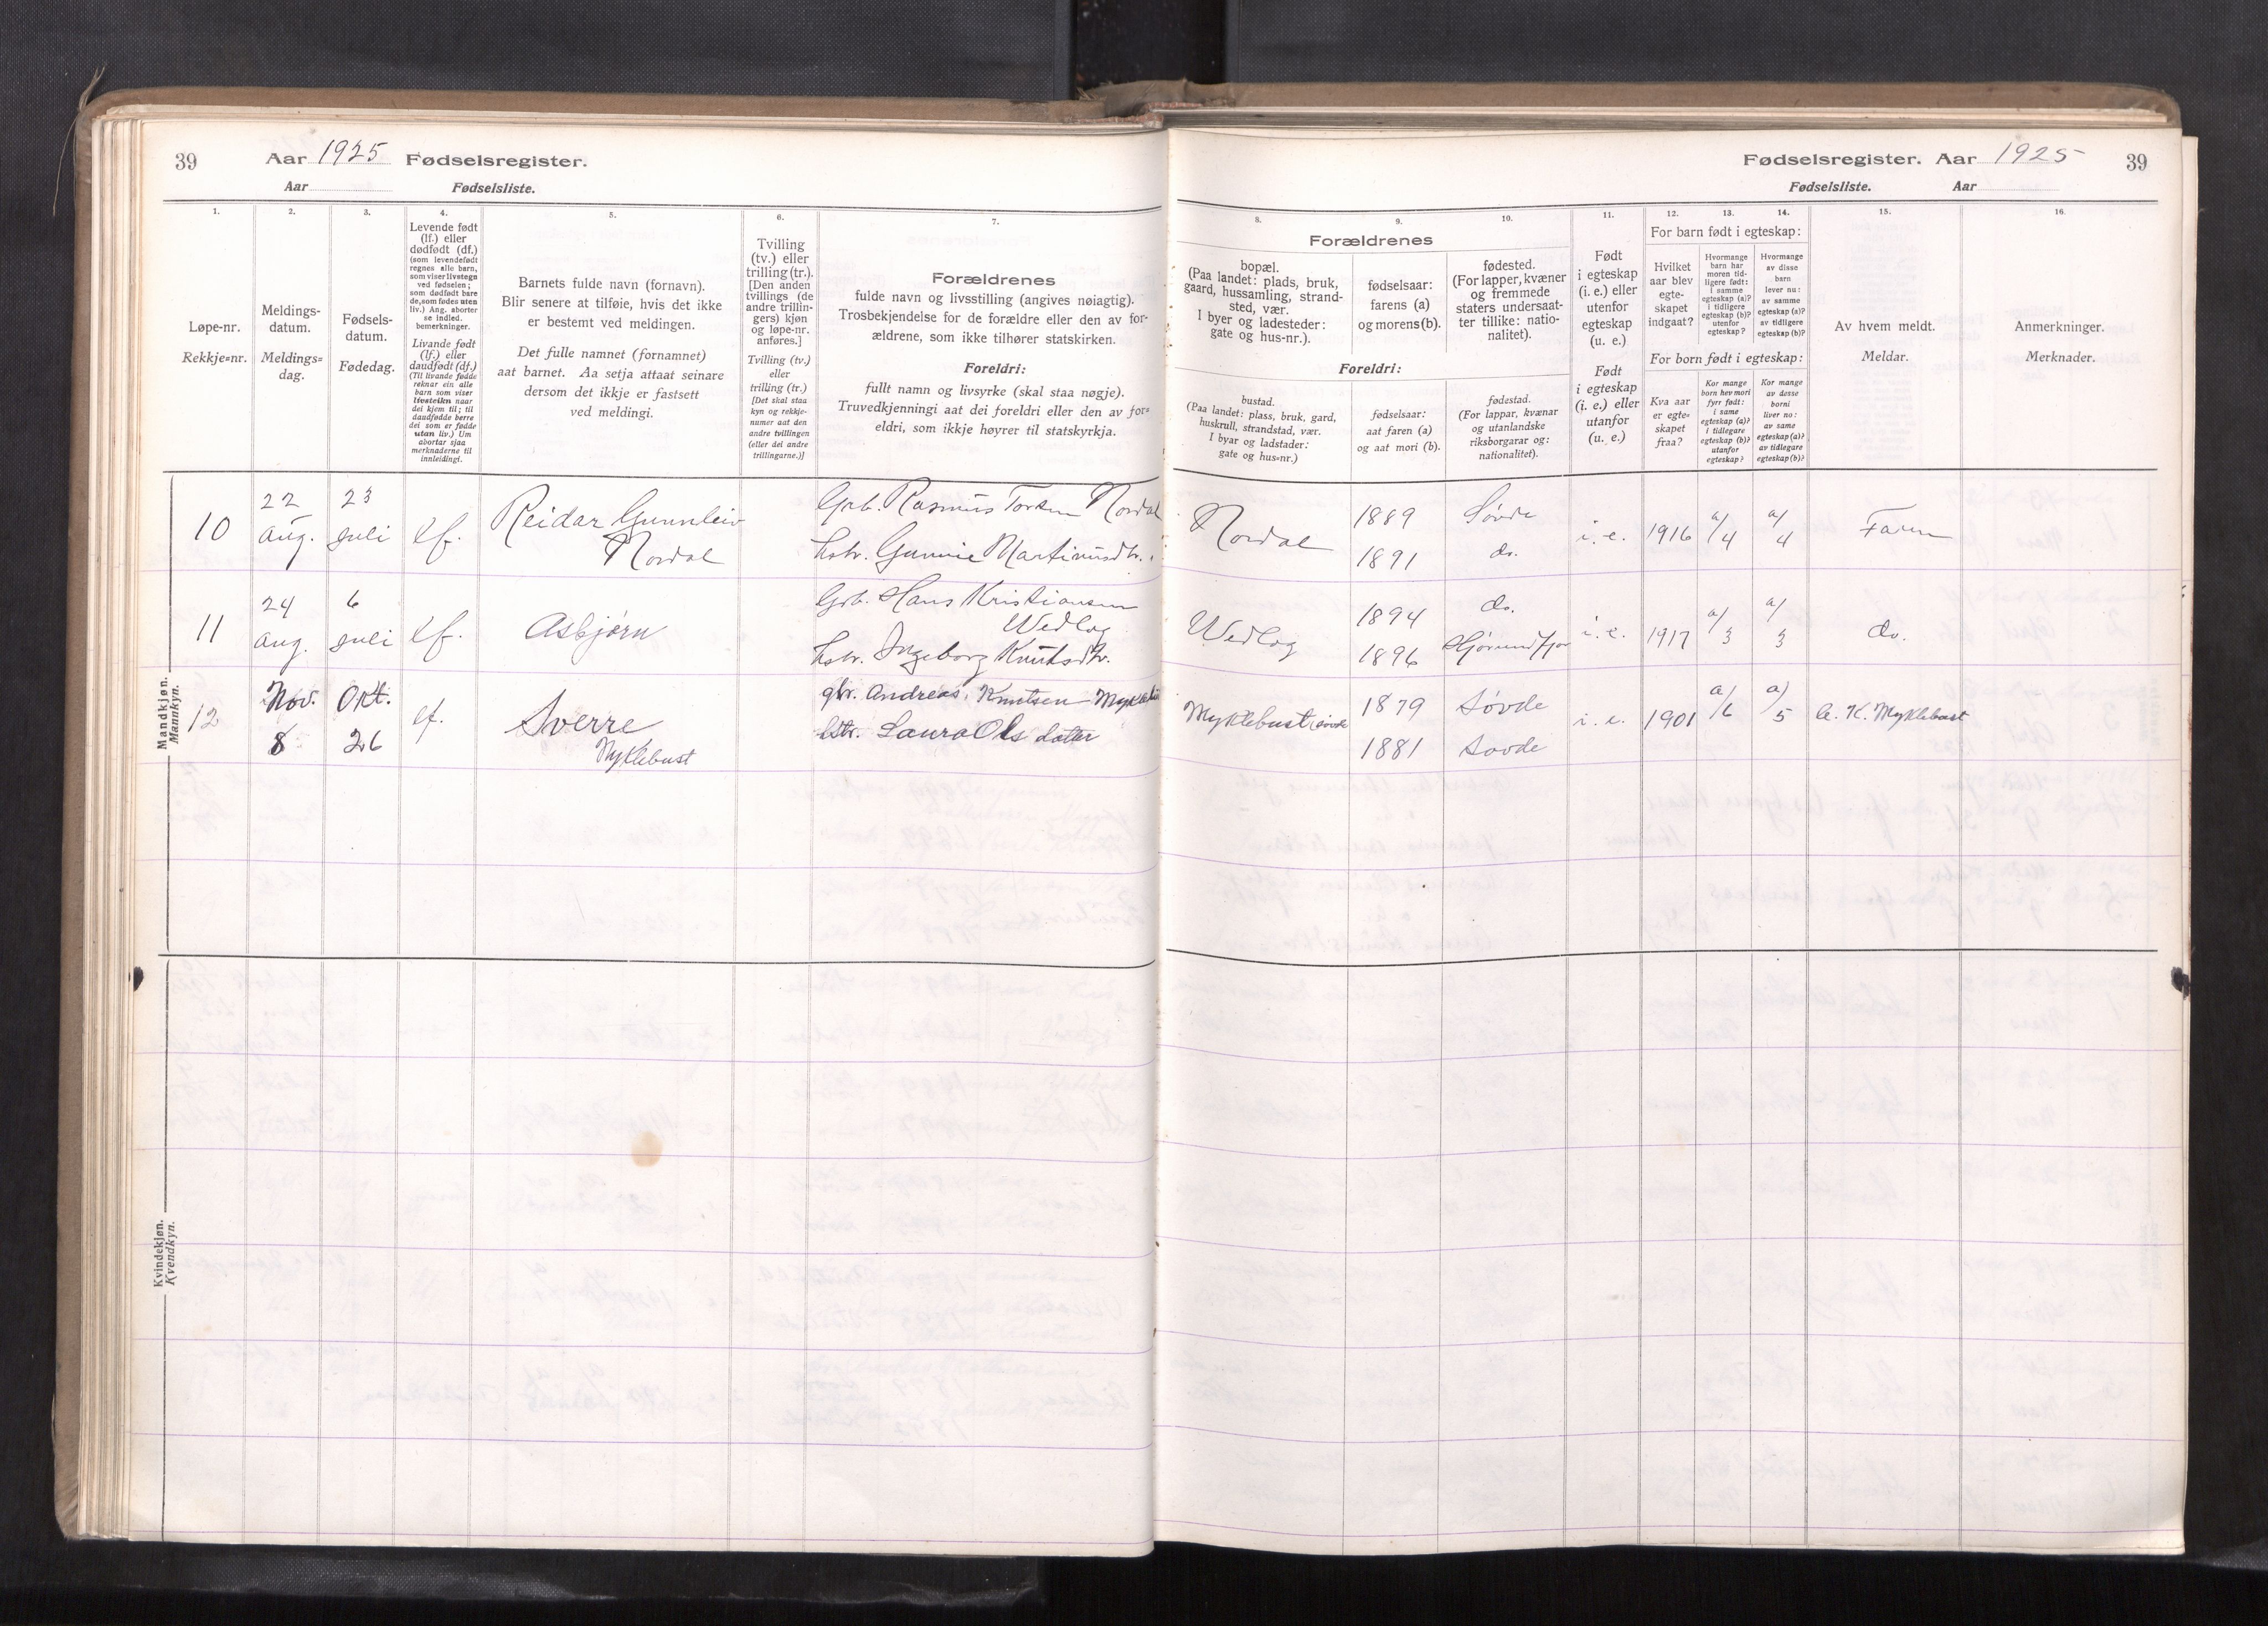 39 Aar 1925 Fødselsregister.
Aar Fødselsliste.
1.
Løpe-nr.
Rekkje=nr.
2.
Meldings-
datum.
Meldings=
dag.
3.
Fødsels-
datum.
Fødedag.
4.
Levende født
(lf.) eller
dødfødt (df.)
(som levendefødt
regnes alle barn,
som viser livstegn
ved fødselen;
som dødfødt bare
de, som fødes uten
liv.) Ang. aborter
se indled.
bemerkninger.
Livande født
(lf.) eller
daudfødt (df.)
(Til livande fødde
reknar ein alle
barn som viser
livsteikn naar
dei kjem til; til
daudfødde berre
dei som er fødde
utan liv.) Um
abortar sjaa
merknaderne til
innleidingi.
5.
Barnets fulde navn (fornavn).
Blir senere at tilføie, hvis det ikke
er bestemt ved meldingen.
Det fulle namnet (fornamnet)
aat barnet. Aa setja attaat seinare
dersom det ikkje er fastsett
ved meldingi.
6.
Tvilling
(tv.) eller
trilling (tr.).
[Den anden
tvillings (de
andre trillin-
gers) kjøn
og løpe-nr.
anføres.]
Tvilling (tv.)
eller
trilling (tr.)
[Det skal staa
kyn og rekkje-
numer aat den
andre tvillingen
(eller dei andre
trillingarne.)]
7.
Forældrenes
fulde navn og livsstilling (angives nøiagtig).
Trosbekjendelse for de forældre eller den av for-
ældrene, som ikke tilhører statskirken.
Foreldri:
fullt namn og livsyrke (skal staa nøgje).
Truvedkjenningi aat dei foreldri eller den av for=
eldri, som ikkje høyrer til statskyrkja.
Mandkjøn.
Mannkyn.
10
22
Aug.
23
Juli
lf.
Reidar Gunnleiv
Nordal
Grb. Rasmus Torsen Nordal
hstr. Gunnie Martinusdtr.
11
24
Aug.
6
Juli
lf.
Asbjørn
Grb. Hans Kristiansen
Wedlog
hstr. Ingeborg Knutsdtr.
12
Nov.
8
Okt.
26
lf.
Sverre
Myklebust
gbr. Andreas Knutsen Myklebust
hstr. Laura Ols datter
Kvindekjøn.
Kvendkyn.
Fødselsregister. Aar 1925 39
Fødselsliste. Aar
8.
Forældrenes
bopæl.
(Paa landet: plads, bruk,
gaard, hussamling, strand-
sted, vær.
I byer og ladesteder:
gate og hus-nr.).
Foreldri:
bustad.
(Paa landet: plass, bruk, gard,
huskrull, strandstad, vær.
I byar og ladstader:
gate og hus=nr.)
9.
fødselsaar:
farens (a)
og morens (b).
fødselsaar:
aat faren (a)
og aat mori (b).
10.
fødested.
(For lapper, kvæner
og fremmede
staters undersaat-
ter tillike: natio-
nalitet).
fødestad.
(For lappar, kvænar
og utanlandske
riksborgarar og:
nationalitet).
11.
Født
i egteskap
(i. e.) eller
utenfor
egteskap
(u. e.)
Født
i egteskap
(i. e.) eller
utanfor
(u. e.)
For barn født i egteskap:
12.
Hvilket
aar blev
egte-
skapet
indgaat?
13.
Hvormange
barn har
moren tid-
ligere født:
i samme
egteskap (a)?
i tidligere
egteskap (b)?
utenfor
egteskap?
14.
Hvormange
av disse
barn
lever nu:
av samme
egteskap (a)?
av tidligere
egteskap (b)?
For born født i egteskap:
Kva aar
er egte=
skapet
fraa?
Kor mange
born hev mori
fyrr født:
i same
egteskap (a)?
i tidlegare
egteskap (b)?
utanfor
egteskap?
Kor mange
av desse
borni
liver no:
av same
egteskap (a)?
av tidlegare
egteskap (b)?
15.
Av hvem meldt.
Meldar.
16.
Anmerkninger.
Merknader.
Nordal
1889
1891
Søvde
do.
i. e.
1916
a/4
a/4
Faren
Wedlog
1894
1896
do.
Hjørundfjor
i. e.
1917
a/3
a/3
do.
Myklebust, Søvde
1879
1881
Søvde
Søvde
i. e.
1901
a/6
a/5
A. K. Myklebust